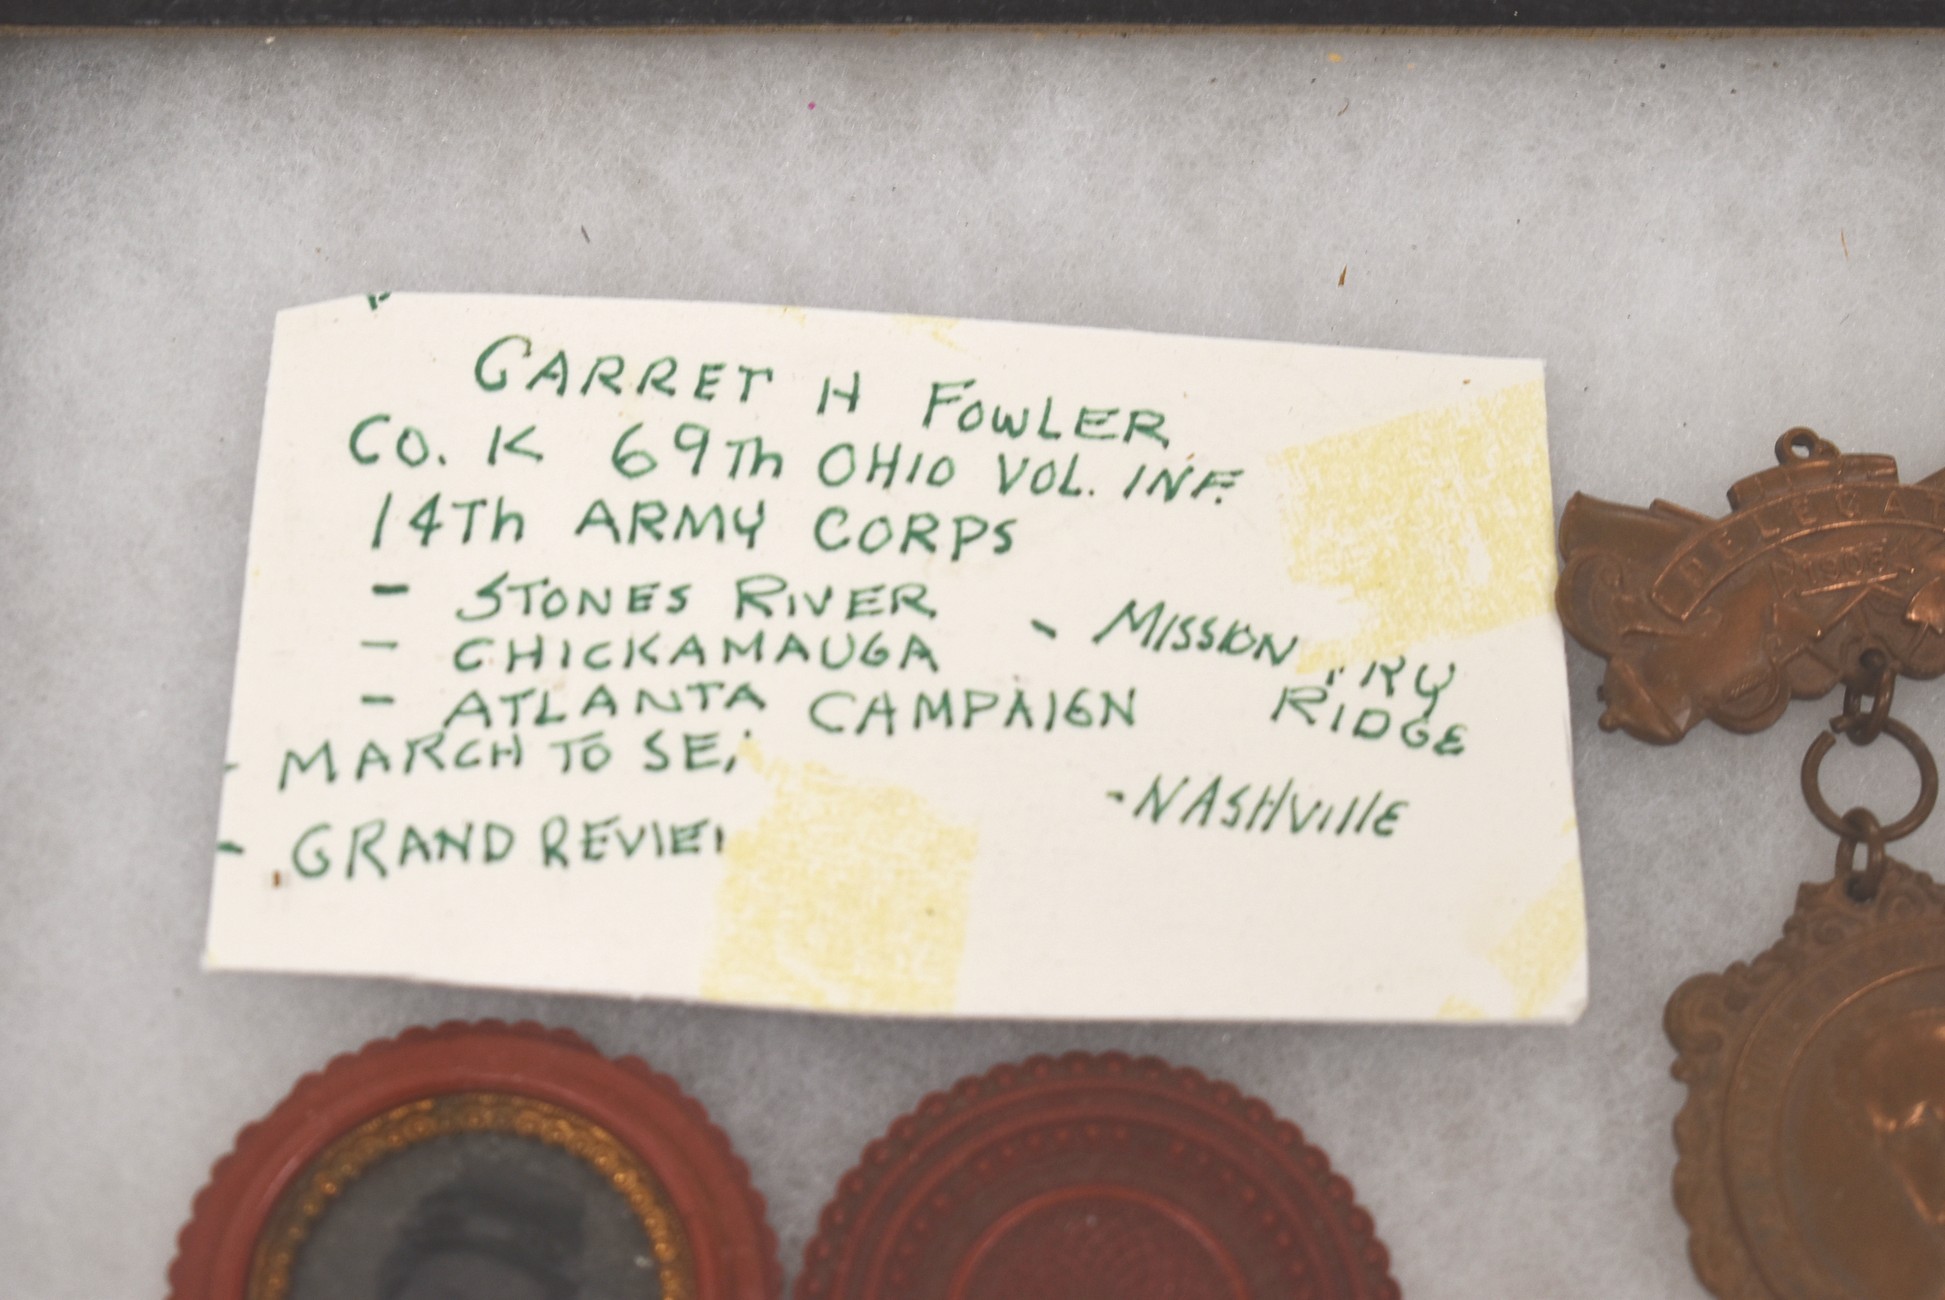 GARRET H FOWLER
CO. K 69Th OHIO VOL. INF.
14Th ARMY CORPS
- STONES RIVER
- CHICKAMAUGA
- ATLANTA CAMPAIGN
- MARCH TO SE
- GRAND REVIE
- MISSION RY
RIDGE
- NASHVIllE
DELEGAT